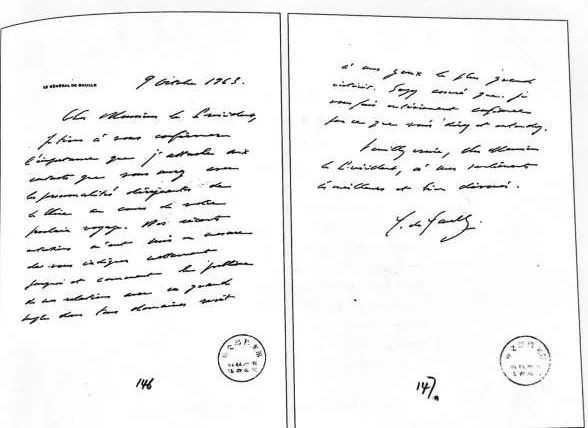 LE GÉNÉRAL DE GAULLE
9 Octobre 1963.
Cher Monsieur le Président,
Je tiens à vous confirmer
l'importance que j'attache aux
contacts que vous aurez avec
les personnalités dirigeantes de
la Chine au cours de votre
prochain voyage. Nos récents
entretiens m'ont mis en mesure
de vous indiquer nettement
pourquoi et comment le problème
de nos relations avec ce grand
peuple dans tous domaines revêt
146
à mes yeux le plus grand
intérêt. Soyez assuré que je
vous fais entièrement confiance
pour ce que vous direz et entendrez.
Veuillez croire, cher Monsieur
le Président, à mes sentiments
les meilleurs et bien dévoués.
C. de Gaulle.
147